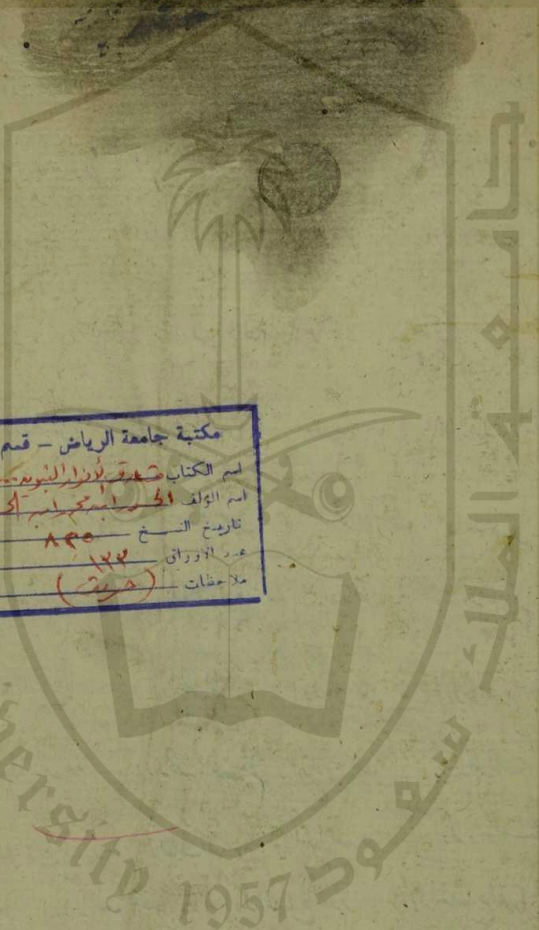 مكتبة جامعة الرياض – قسم
اسم الكتاب مشارق الأنوار النبوية...
اسم المؤلف الحسن ابن محمد ابن
تاريخ النسخ ٨٣٥
عدد الأوراق ١٣٣
ملاحظات (حديث)
جامعة الملك سعود
ersity 1957